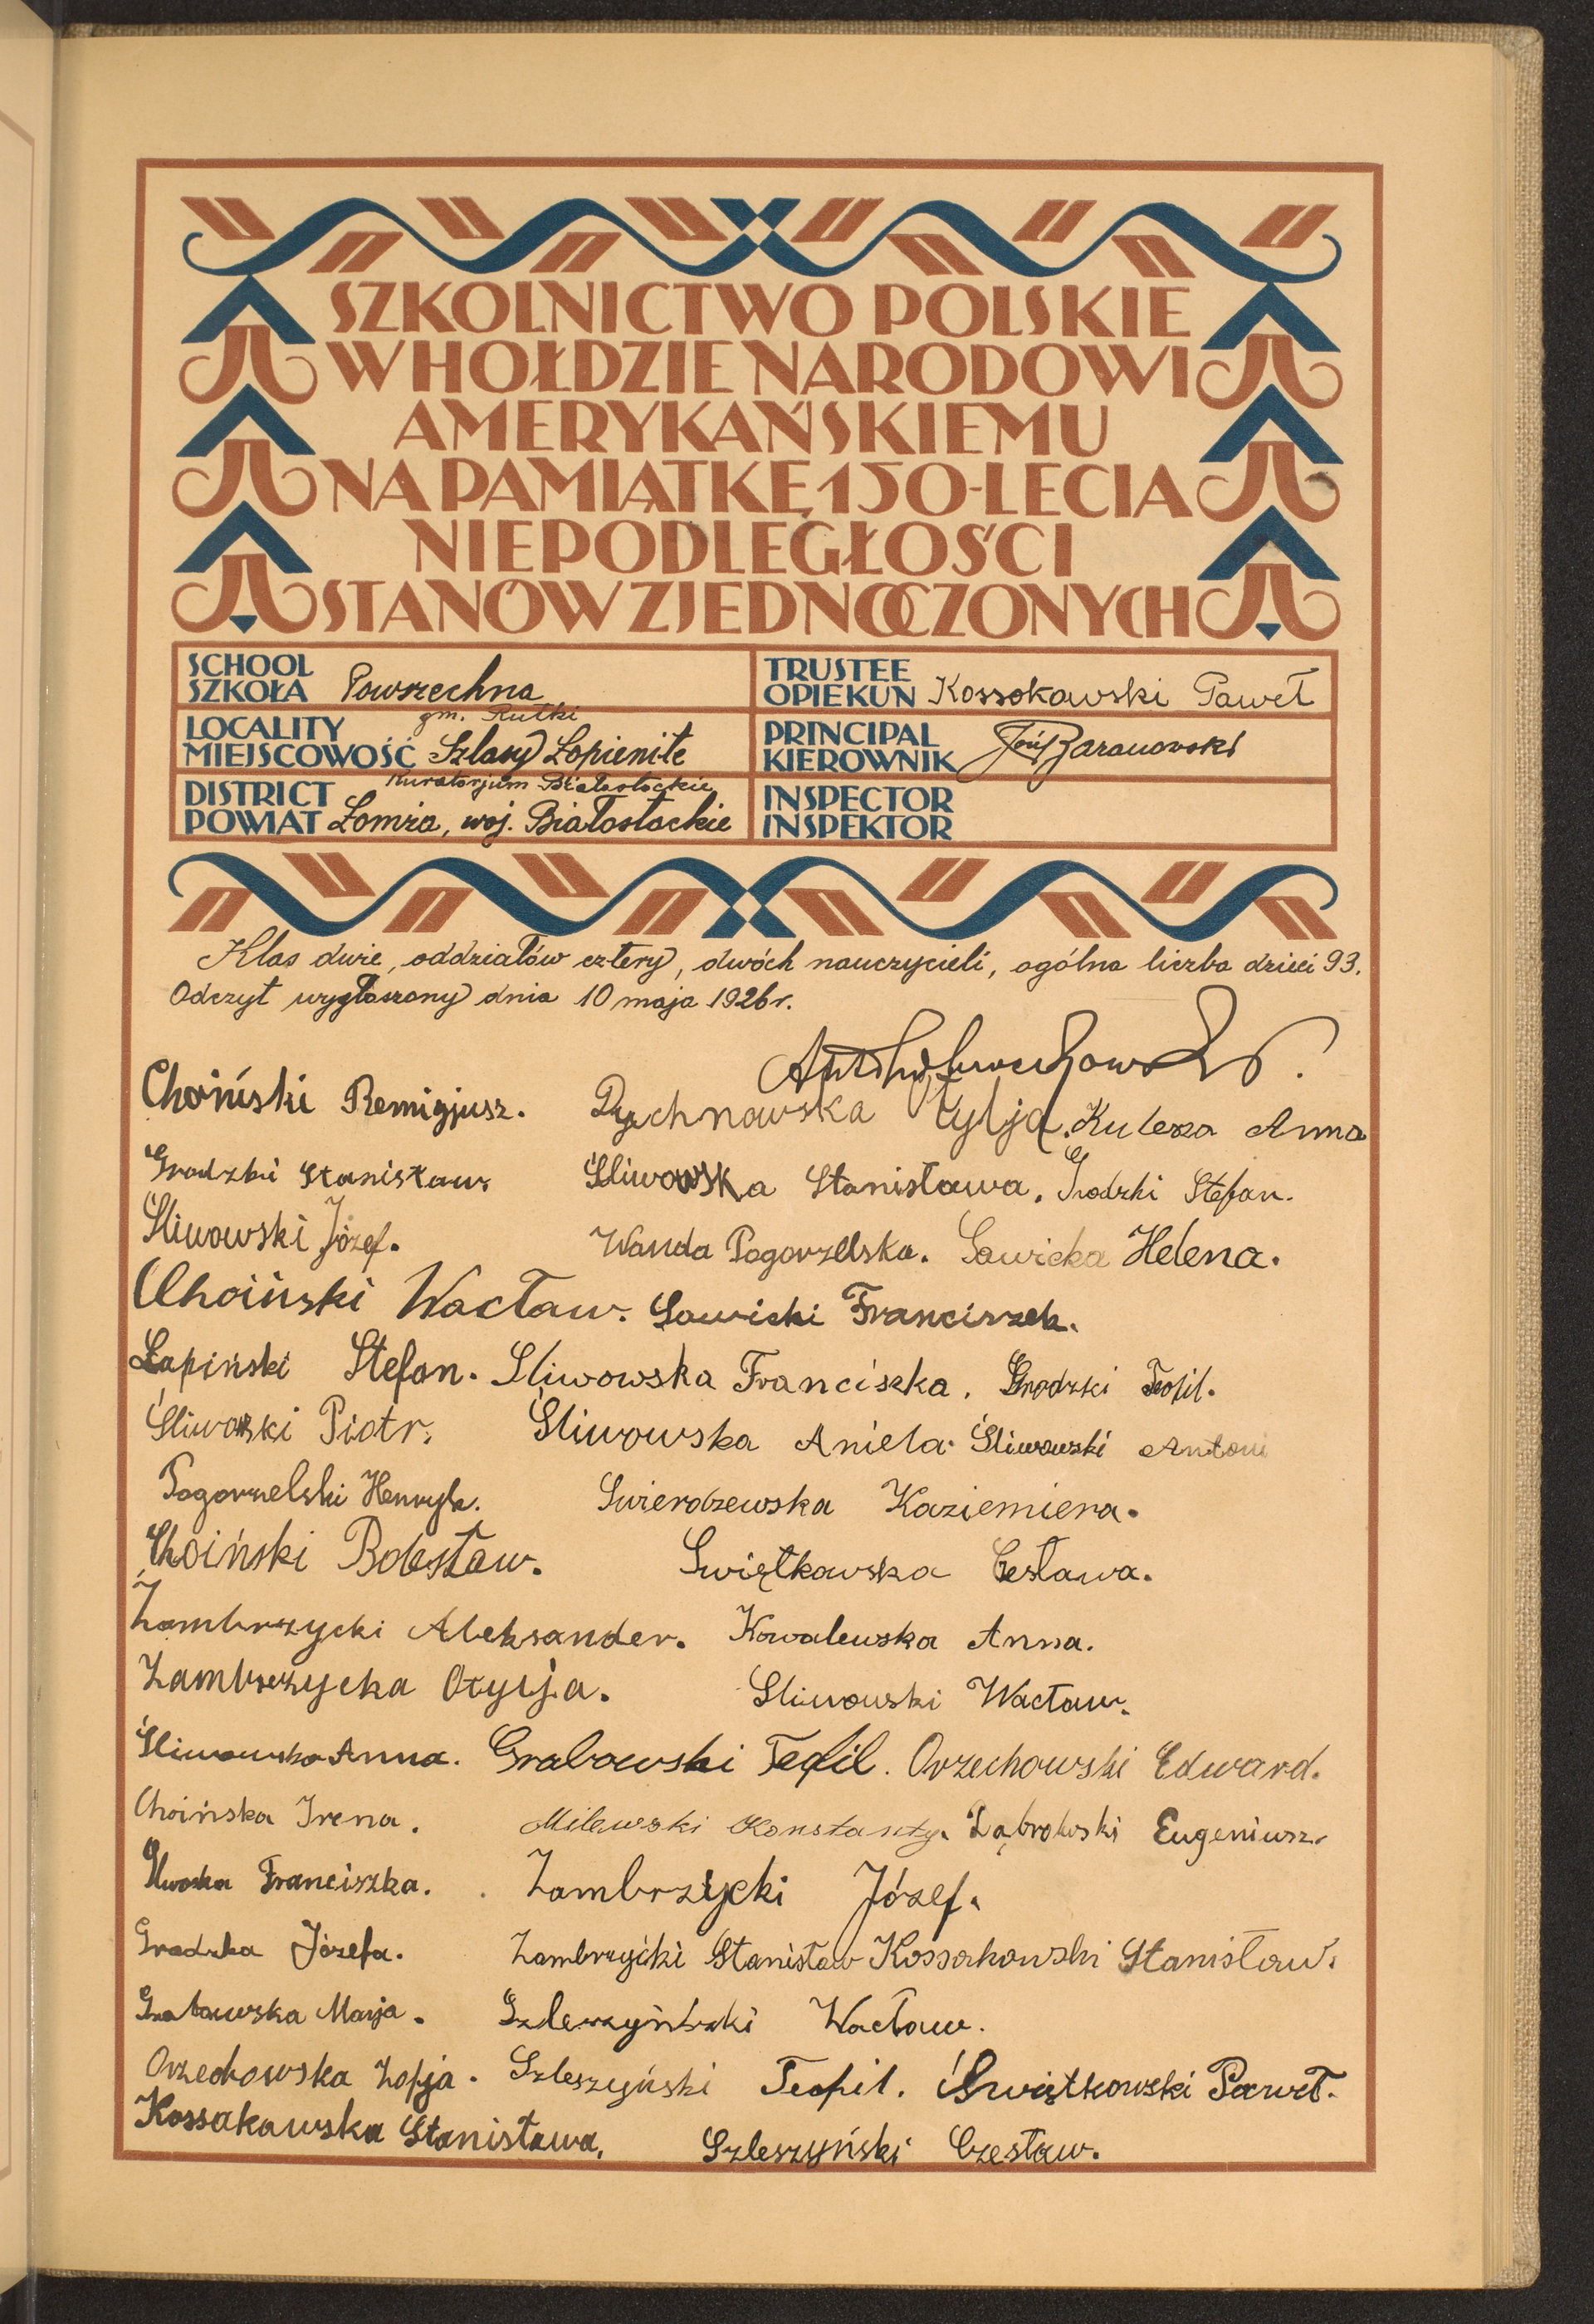 SZKOLNICTWO POLSKIE
W HOŁDZIE NARODOWI
AMERYKAŃSKIEMU
NA PAMIĄTKĘ 150-LECIA
NIEPODLEGŁOŚCI
STANÓW ZJEDNOCZONYCH
SCHOOL
SZKOŁA Powszechna
TRUSTEE
OPIEKUN Kossokowski Paweł
gm. Rutki
LOCALITY
MIEJSCOWOŚĆ Szlasy Łopienite
PRINCIPAL
KIEROWNIK Baranowski
Kuratorjum Białostockie
DISTRICT
POWIAT Łomża, woj. Białostockie
INSPECTOR
INSPEKTOR
Klas dwie, oddziałów cztery, dwóch nauczycieli, ogólna liczba dzieci 93.
Odczyt wygłoszony dnia 10 maja 1926 r.
Choiński Remigjusz. Rychnowska Otylja. Kulesza Anna
Grodzki Stanisław Śliwowska Stanisława. Grodzki Stefan.
Śliwowski Józef. Wanda Pogorzelska. Sawicka Helena.
Choiński Wacław. Sawicki Franciszek.
Łapiński Stefan. Śliwowska Franciszka. Grodzki Teofil.
Śliwoski Piotr. Śliwowska Aniela. Śliwowski Antoni
Pogorzelski Henryk. Świerdzewska Kaziemiera.
Choiński Bolesław. Świętkowska Czesława.
Zambrzycki Aleksander. Kowalewska Anna.
Zambrzycka Otylja. Śliwowski Wacław.
Śliwowska Anna. Grabowski Teofil. Orzechowski Edward.
Choińska Irena. Milewski Konstanty. Dąbrowski Eugeniusz.
Franciszka. Zambrzycki Józef.
Grodzka Józefa. Zambrzycki Stanisław Kossakowski Stanisław.
Grabowska Marja. Szleszyński Wacław.
Orzechowska Zofja. Szleszyński Teofil. Świątkowski Paweł.
Kossakawska Stanisława. Szleszyński Czesław.